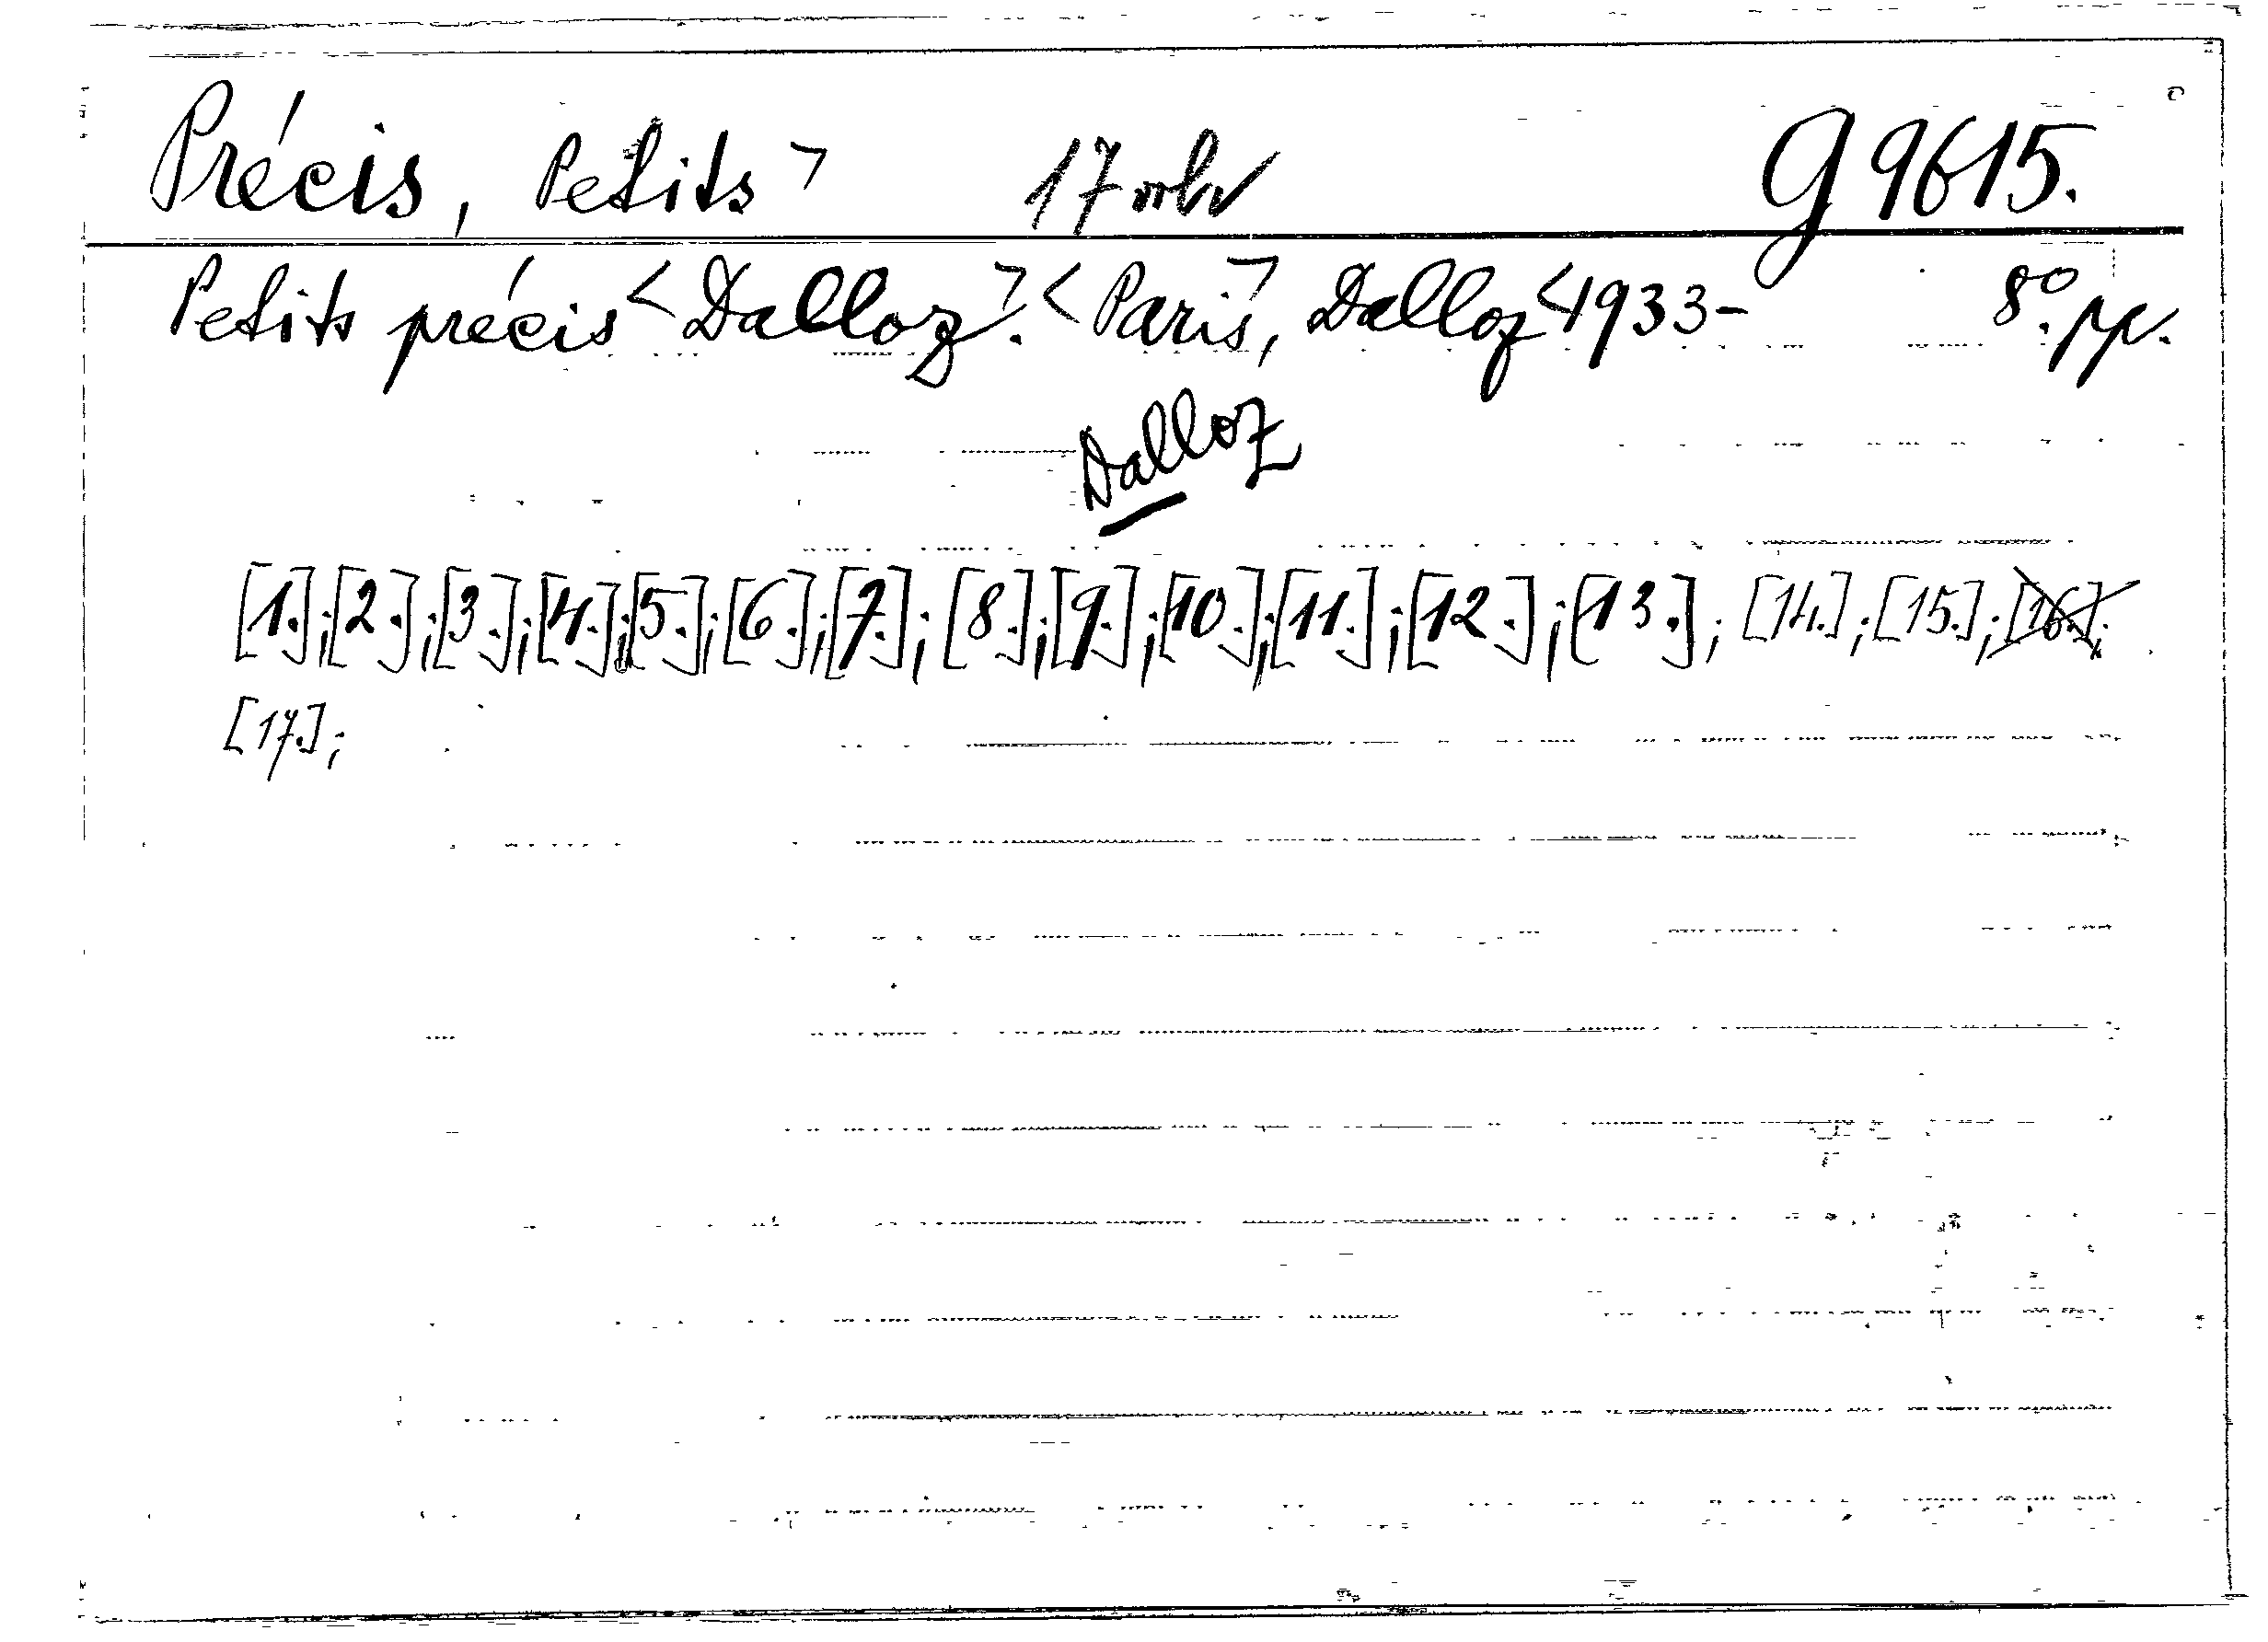 Précis, Petits > G 9615.
Petits précis < Dalloz >. < Paris >, Dalloz < 1933- 8°. pp.
Dalloz
[1.]; [2.]; [3.]; [4.]; [5.]; [6.]; [7.]; [8.]; [9.]; [10.]; [11.]; [12.]; [13.]; [14.]; [15.]; [16.];
[17.];